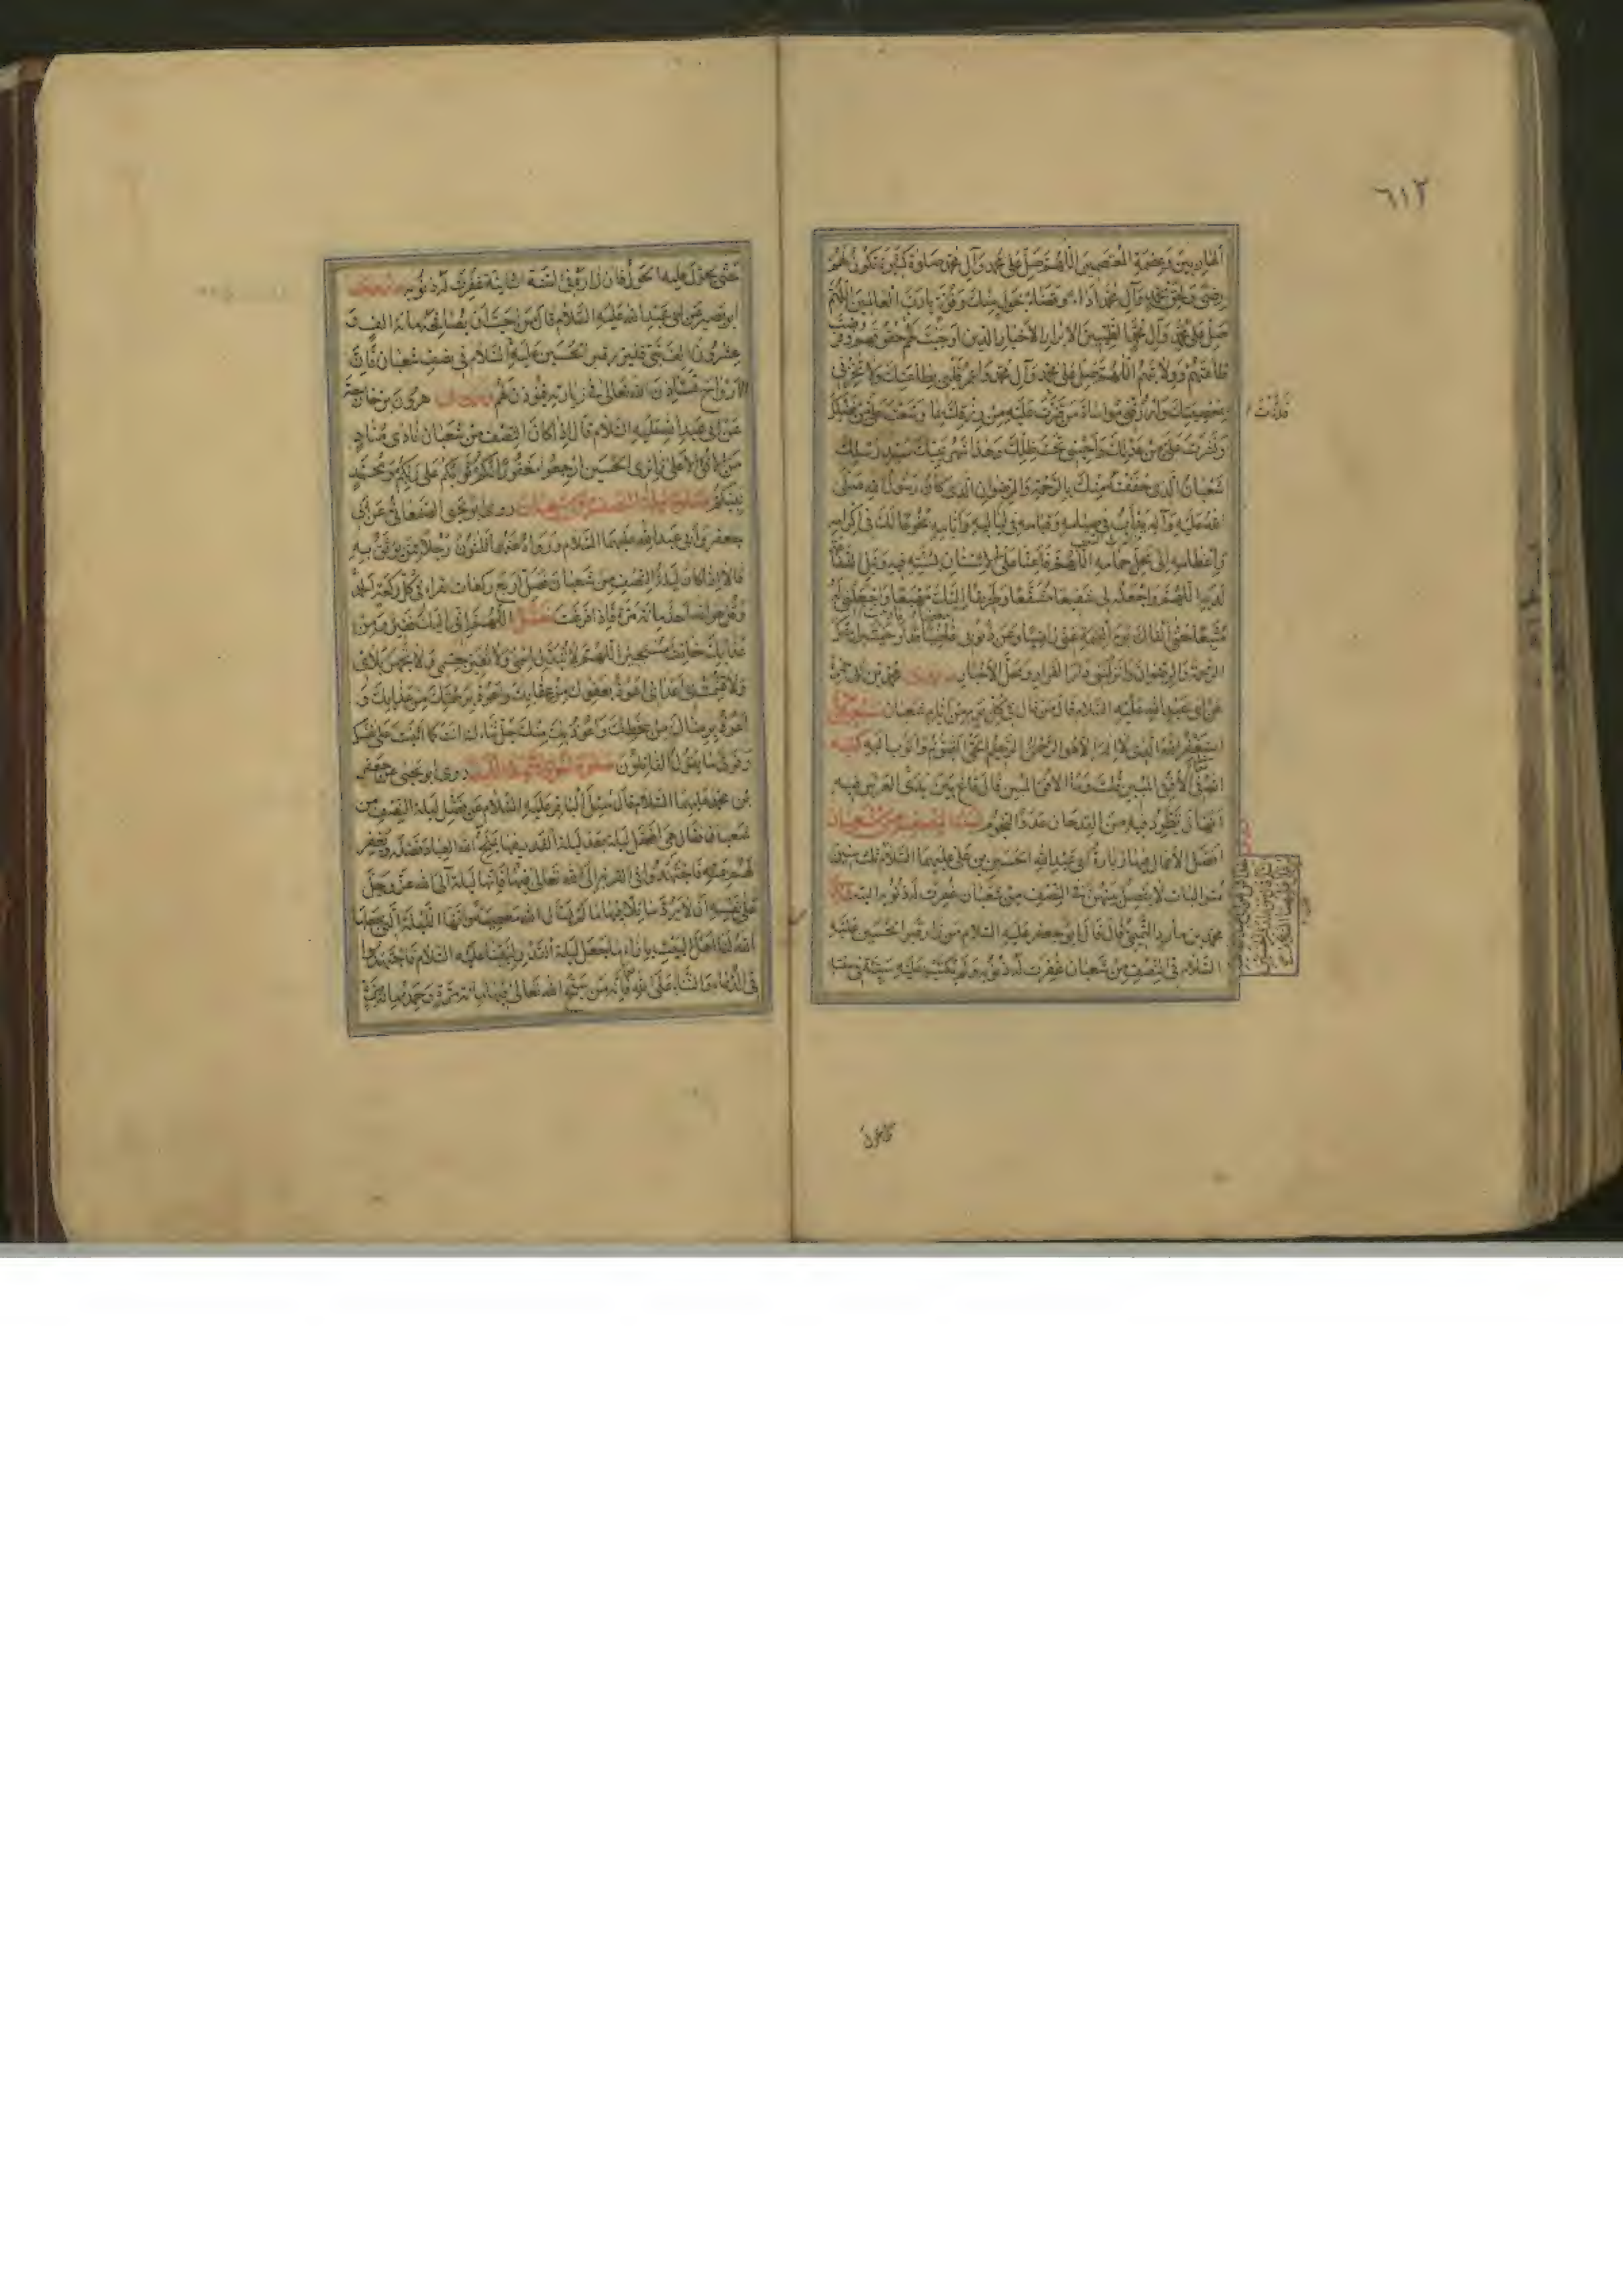 ٦١٢
الهاربين وعصمة المعتصمين اللهم صل على محمد وآل محمد صلوة كثيرة تكون لهم
رضى ولحق محمد وآل محمد اداء وقضاء بحول منك وقوة يا رب العالمين اللهم
صل على محمد وآل محمد الطيبين الابرار الاخيار الذين اوجبت لهم حقوقهم وفرضت
طاعتهم وولايتهم اللهم صل على محمد وآل محمد واعمر قلبي بطاعتك ولا تخزني
بمعصيتك وارزقني مواساة من قترت عليه من رزقك بما وسعت علي من فضلك
ونشرت علي من عدلك واحييتني تحت ظلك وهذا شهر نبيك سيد رسلك
شعبان الذي حففته منك بالرحمة والرضوان الذي كان رسول الله صلى
الله عليه وآله يدأب في صيامه وقيامه في لياليه وايامه بخوعا لك في اكرامه
واعظامه الى محل حمامه اللهم فاعنا على الاستنان بسنته فيه ونيل الشفاعة
لديه اللهم واجعله لي شفيعا مشفعا وطريقا اليك مهيعا واجعلني له
متبعا حتى القاك يوم القيمة عني راضيا وعن ذنوبي غاضيا قد اوجبت لي منك
الرحمة والرضوان وانزلتني دار القرار ومحل الاخيار محمد بن ابي حمزة
عن ابي عبد الله عليه السلام قال من قال في كل يوم من ايام شعبان سبعين مرة
استغفر الله الذي لا اله الا هو الرحمن الرحيم الحي القيوم واتوب اليه كتبه
الله في الافق المبين قلت وما الافق المبين قال قاع بين يدي العرش فيه
انهار تطرد فيه من القدحان عدد النجوم ليلة النصف من شعبان
افضل الاعمال فيها زيارة ابي عبد الله الحسين بن علي عليهما السلام ثلث سنين
متواليات لا يفصل بينهن في النصف من شعبان غفرت له ذنوبه البتة
محمد بن مارد التميمي قال قال ابو جعفر عليه السلام من زار قبر الحسين عليه
السلام في النصف من شعبان غفرت له ذنوبه ولم يكتب عليه سيئة في سنته
حتى يحول عليه الحول فان زاره في السنة الثانية غفرت له ذنوبه
ابو بصير عن ابي عبد الله عليه السلام قال من احب ان يصافحه مائة الف و
عشرون الف نبي فليزر قبر الحسين عليه السلام في نصف شعبان فان
الارواح تستاذن الله تعالى في زيارته فيؤذن لهم هرون بن خارجة
عن ابي عبد الله عليه السلام قال اذا كان النصف من شعبان نادى مناد
من الافق الاعلى زائري الحسين ارجعوا مغفورا لكم ثوابكم على ربكم ومحمد
نبيكم صلوة ليلة النصف من شعبان روى ابو يحيى الصنعاني عن ابي
جعفر وابي عبد الله عليهما السلام ورواه عنهما ثلثون رجلا ممن يوثق به
قالا اذا كان ليلة النصف من شعبان فصل اربع ركعات تقرأ في كل ركعة الحمد
وقل هو الله احد مائة مرة فاذا فرغت فقل اللهم اني اليك فقير ومن
عذابك خائف مستجير اللهم لا تبدل اسمي ولا تغير جسمي ولا تجهد بلائي
ولا تشمت بي اعدائي اعوذ بعفوك من عقابك واعوذ برحمتك من عذابك و
اعوذ برضاك من سخطك واعوذ بك منك جل ثناؤك انت كما اثنيت على نفسك
وفوق ما يقول القائلون روى ابو يحيى عن جعفر
بن محمد عليهما السلام قال سئل الباقر عليه السلام عن فضل ليلة النصف من
شعبان فقال هي افضل ليلة بعد ليلة القدر فيها يمنح الله العباد فضله ويغفر
لهم بمنه فاجتهدوا في القربة الى الله تعالى فيها فانها ليلة آلى الله عز وجل
على نفسه ان لا يرد سائلا فيها ما لم يسأل الله معصية وانها الليلة التي جعلها
الله لنا اهل البيت بازاء ما جعل ليلة القدر لنبينا عليه السلام فاجتهدوا
في الدعاء والثناء على الله فانه من سبح الله تعالى فيها مائة مرة وحمده مائة مرة